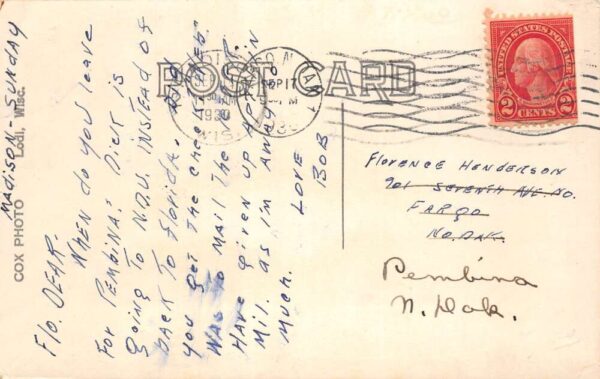 POST CARD
COX PHOTO Lodi, Wisc.
MADISON - SUNDAY
Flo. DEAR-
WHEN do you leave
For PEMBINA? DICK is
going To N.D.U. INSTEAD of
back To Florida. DID
you get THE check
WAS To MAIL THE
HAVE given UP APT. IN
MIL. as I'm AWAY SO
MUCH.
LOVE
BOB
SEP 17
1930
WIS
UNITED STATES POSTAGE
2 CENTS 2
FLORENCE HENDERSON
901 SEVENTH AVE. NO.
FARGO
NO. DAK.
Pembina
N. Dak.